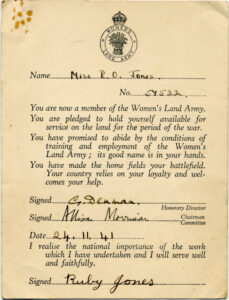 WOMEN'S LAND ARMY
Name Miss R. O. Jones.
No. 54522
You are now a member of the Women's Land Army.
You are pledged to hold yourself available for
service on the land for the period of the war.
You have promised to abide by the conditions of
training and employment of the Women's
Land Army ; its good name is in your hands.
You have made the home fields your battlefield.
Your country relies on your loyalty and wel-
comes your help.
Signed G. Denman.
Honorary Director
Signed
Chairman
Committee
Date 24. 11. 41
I realise the national importance of the work
which I have undertaken and I will serve well
and faithfully.
Signed Ruby Jones